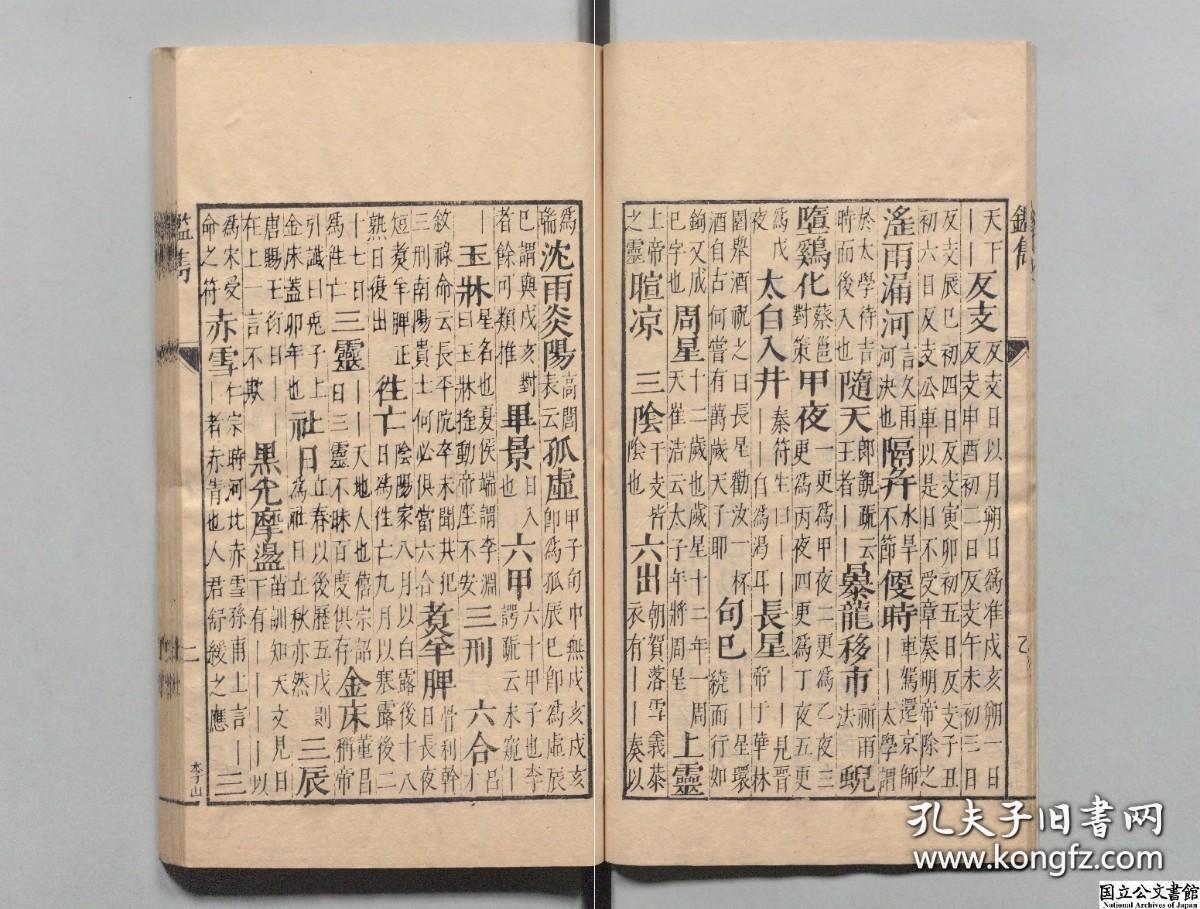 天下——反支反支日以月朔日爲准戌亥朔一日反支申酉初二日反支午未初三日
反支辰巳初四日反支寅卯初五日反支子丑初六日反支公車以是日不受章奏明帝除之
滛雨漏河言久雨河決也隔并水旱不節偃時車駕還京師——太學謂
於太學待吉時而後入也隨天郎顗疏云王者——暴龍移市祈雨法蜺
墮鷄化蔡邕對策甲夜一更爲甲夜二更爲乙夜三更爲丙夜四更爲丁夜五更
爲戊夜太白入井秦符生曰——白爲渴耳長星——見晋帝于華林
園舉酒祝之曰長星勸汝一杯酒自古何嘗有萬歲天子耶句巳——星環繞而行如
鉤又成巳字也周星十二歲也歲星十二年一周天崔浩云太子年將周星上靈
上帝之靈暄凉三陰干支皆陰也六出朝賀落雪義恭衣有——奏以
爲瑞沈雨炎陽高閭表云孤虛甲子旬中無戌亥戌亥即爲孤辰巳即爲虛辰
巳謂與戌亥對者餘可類推畢景日入也六甲六十甲子也李諤疏云未窺—
—玉牀星名也夏侯端謂李淵曰玉牀搖動帝座不安三刑六合呂才
敘祿命云長平院卒未聞共犯三刑南陽貴士何必俱當六合煑羊脾骨利幹日長夜
短煑羊脾正熟日復出徃亡陰陽家八月以白露後十八日爲徃亡九月以寒露後二
十七日爲徃亡三靈——天地人也僖宗詔曰三靈不昧百度俱存金床董昌稱帝
引讖曰兎子上金床蓋卯年也社日立春以後歷五戊則爲社日立秋亦然三辰
唐賜王衍曰——在上一言不欺黒光摩盪苗訓知天文見日下有————以
爲宋受命之符赤雪仁宗時河北赤雪孫甫上言——者赤青也人君舒緩之應三
二
孔夫子旧书网
www.kongfz.com
国立公文書館
National Archives of Japan